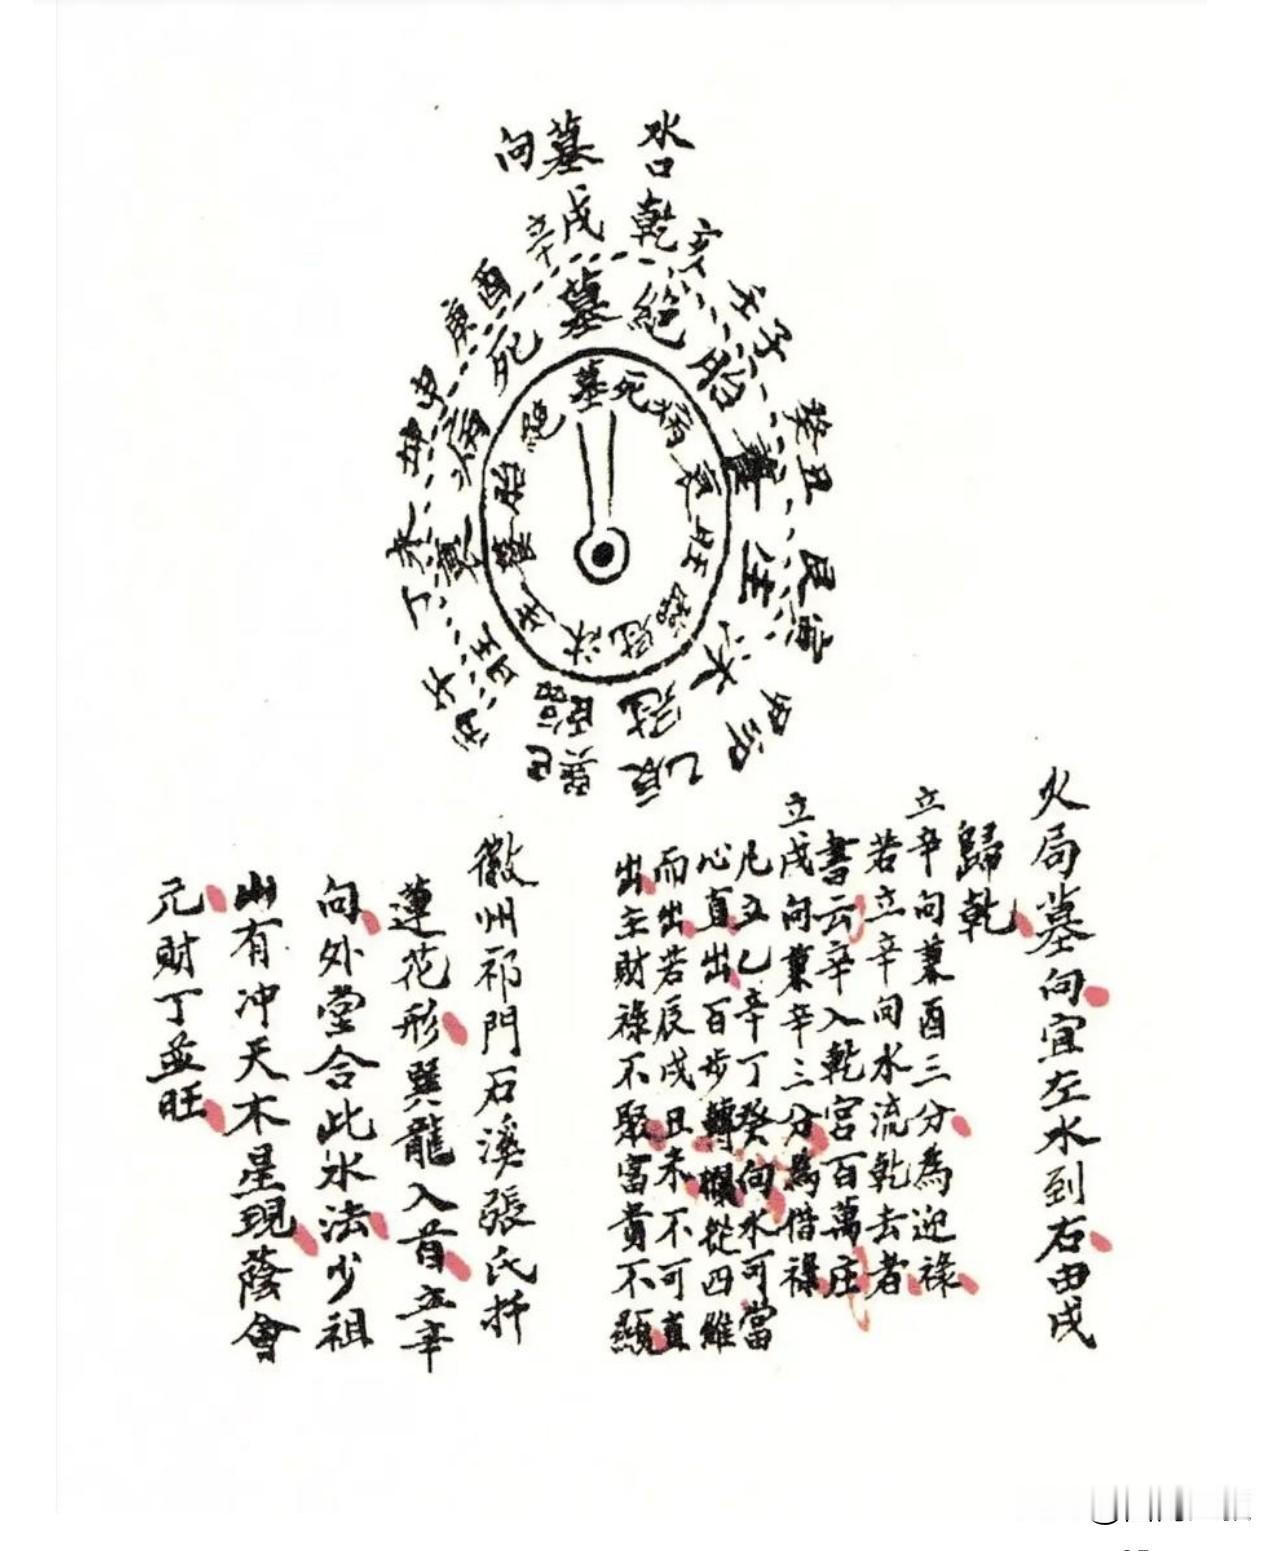 水口
墓向
乾亥
壬子
癸丑
艮寅
甲卯
乙辰
巽巳
丙午
丁未
坤申
庚酉
辛戌
墓
絕
胎
養
生
沐
冠
臨
旺
衰
病
死
墓
死
病
衰
旺
臨
冠
沐
生
養
胎
絕
火局墓向宜左水到右由戌
歸乾
立辛向兼酉三分為迎祿
若立辛向水流乾去者
書云辛入乾宮百萬庄
立戌向兼辛三分為借祿
凡立乙辛丁癸向水可當
心直出百步轉欄從四維
而出若辰戌丑未不可直
出主財祿不聚富貴不顯
徽州祁門石溪張氏扦
蓮花形巽龍入首立辛
向外堂合此水法少祖
山有冲天木星現蔭會
元財丁並旺